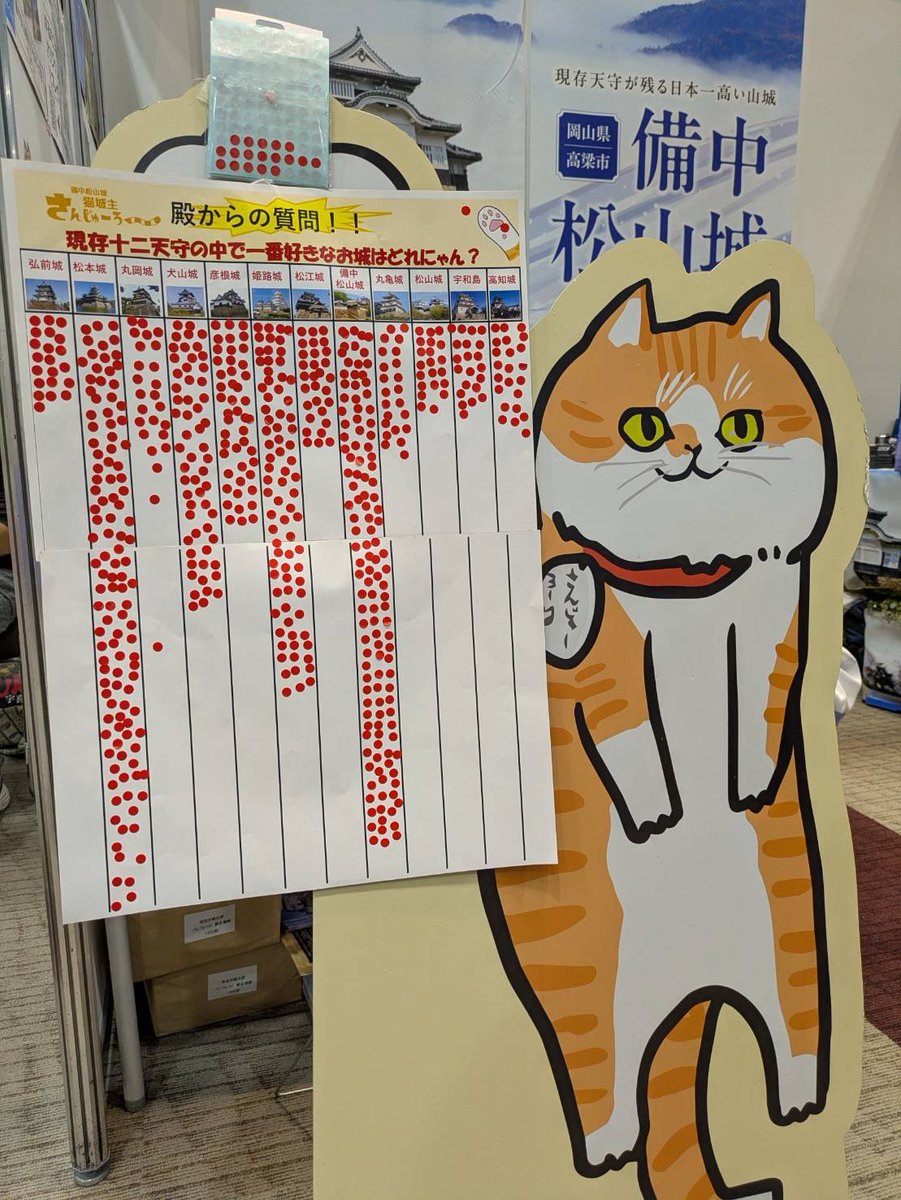 現存天守が残る日本一高い山城
岡山県
高梁市
備中
松山城
備中松山城
猫城主
さんじゅーろー
殿からの質問!!
現存十二天守の中で一番好きなお城はどれにゃん?
弘前城
松本城
丸岡城
犬山城
彦根城
姫路城
松江城
備中
松山城
丸亀城
松山城
宇和島
高知城
さんじゅー
ろー